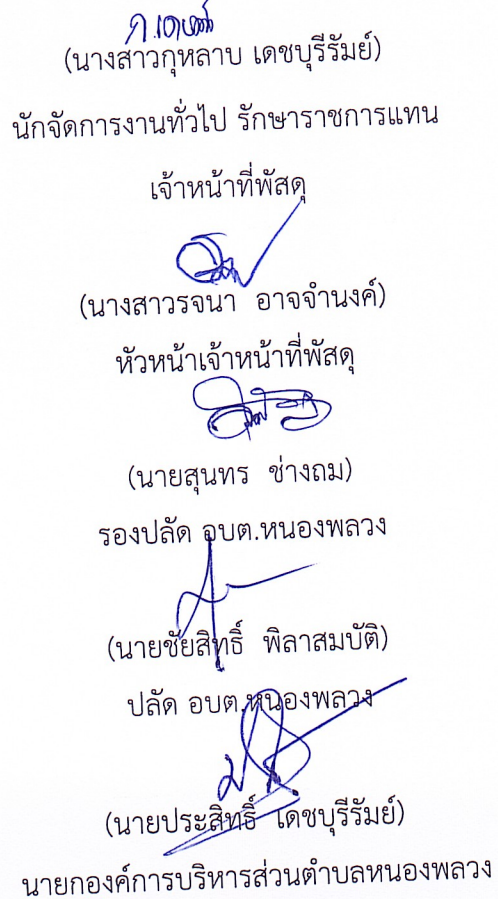 (นางสาวกุหลาบ เดชบุรีรัมย์)
นักจัดการงานทั่วไป รักษาราชการแทน
เจ้าหน้าที่พัสดุ
(นางสาวรจนา อาจจำนงค์)
หัวหน้าเจ้าหน้าที่พัสดุ
(นายสุนทร ช่างถม)
รองปลัด อบต.หนองพลวง
(นายชัยสิทธิ์ พิลาสมบัติ)
ปลัด อบต.หนองพลวง
(นายประสิทธิ์ เดชบุรีรัมย์)
นายกองค์การบริหารส่วนตำบลหนองพลวง